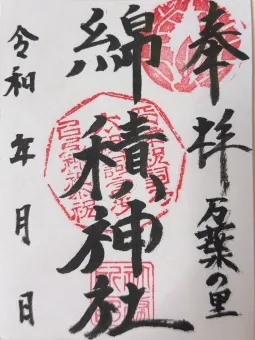 奉拝
万葉の里
綿積神社
令和 年 月 日